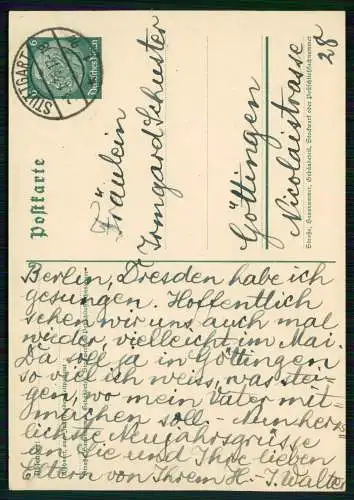 STUTTGART
6
Deutsches Reich
Postkarte
Fräulein
Irmgard Schuster
Göttingen
Nicolaistrasse
28
Straße, Hausnummer, Gebäudeteil, Stockwerk oder Postschließfachnummer
Berlin, Dresden habe ich
gesungen. Hoffentlich
sehen wir uns auch mal
wieder, vielleicht im Mai.
Da soll ja in Göttingen
so viel ich weiss, was stei-
gen, wo mein Vater mit-
machen soll. - Nun herz-
lichste Neujahrsgrüsse
an Sie und Ihre lieben
Eltern von Ihrem H.-J. Walter